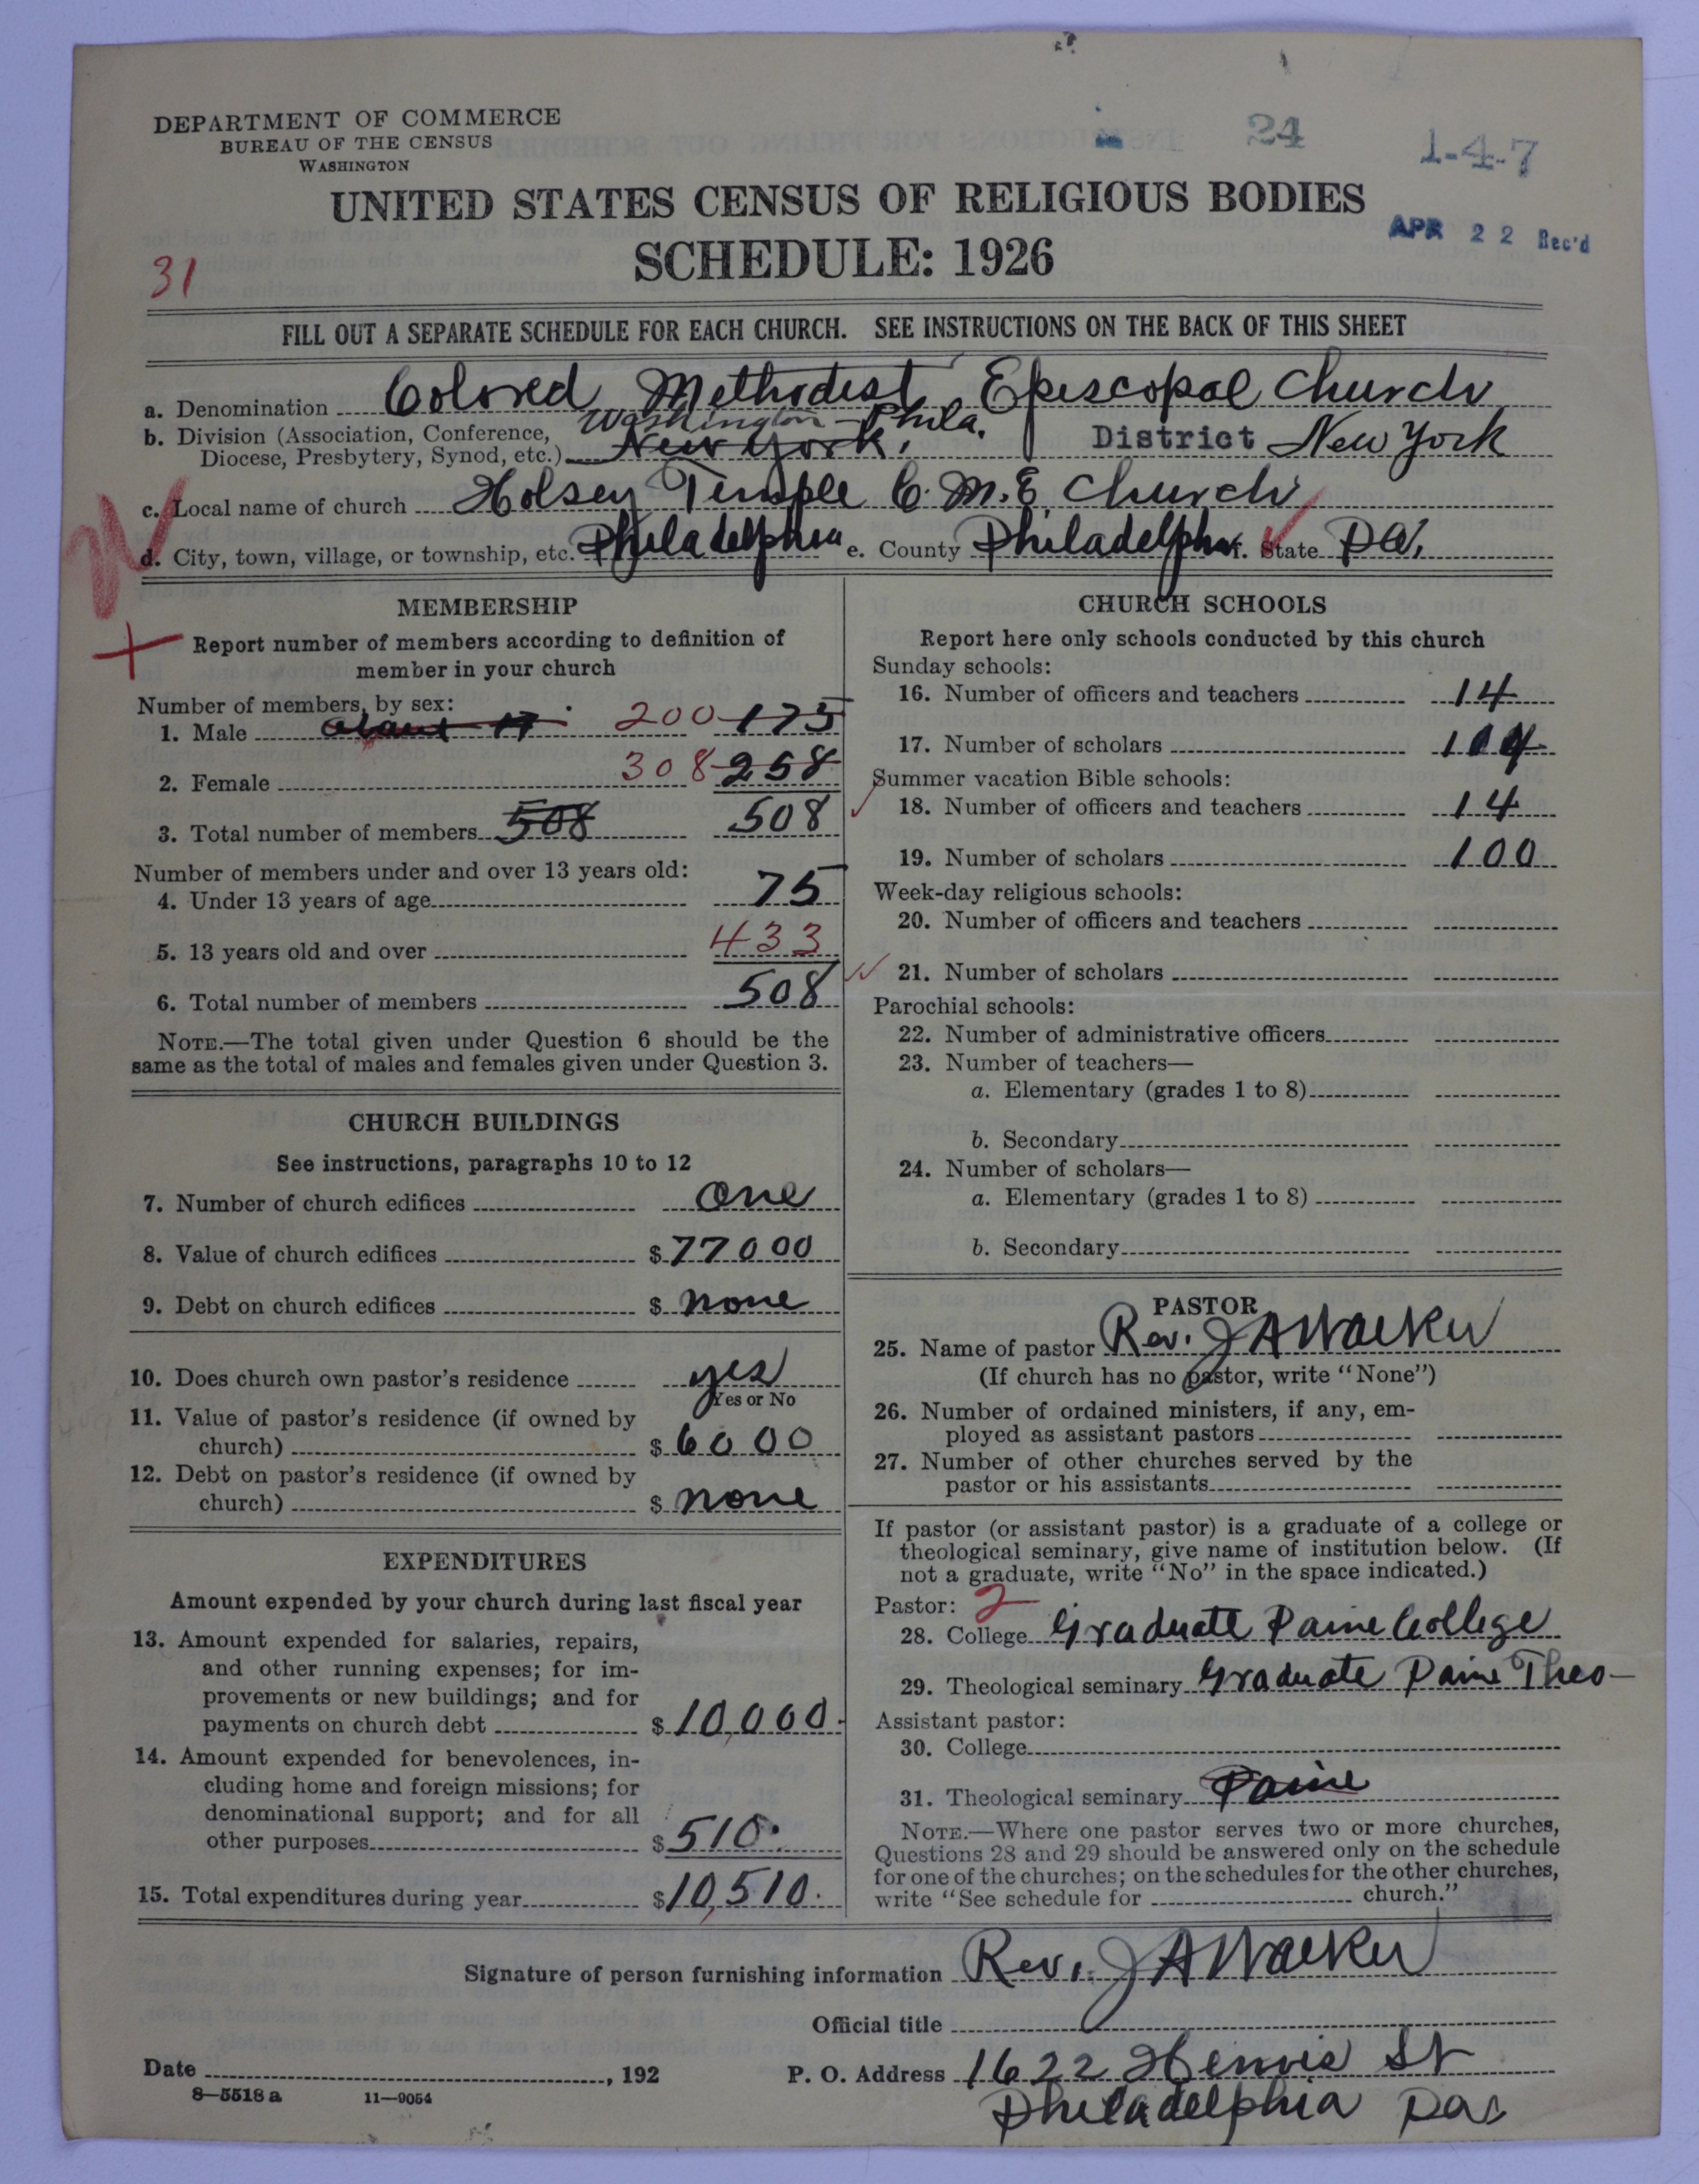 DEPARTMENT OF COMMERCE
BUREAU OF THE CENSUS
WASHINGTON
24
1-4-7
UNITED STATES CENSUS OF RELIGIOUS BODIES
SCHEDULE: 1926
APR 22 Rec'd
31
FILL OUT A SEPARATE SCHEDULE FOR EACH CHURCH. SEE INSTRUCTIONS ON THE BACK OF THIS SHEET
a. Denomination Colored Methodist Episcopal Church
Washington - Phila.
b. Division (Association, Conference, Diocese, Presbytery, Synod, etc.) New York, District New York
c. Local name of church Holsey Temple C. M. E. Church
d. City, town, village, or township, etc. Philadelphia e. County Philadelphia f. State Pa.
MEMBERSHIP
Report number of members according to definition of
member in your church
Number of members, by sex:
1. Male 200 175
2. Female 308 258
3. Total number of members 508 508
Number of members under and over 13 years old:
4. Under 13 years of age 75
5. 13 years old and over 433
6. Total number of members 508
NOTE.—The total given under Question 6 should be the
same as the total of males and females given under Question 3.
CHURCH BUILDINGS
See instructions, paragraphs 10 to 12
7. Number of church edifices one
8. Value of church edifices $ 77000
9. Debt on church edifices $ none
10. Does church own pastor's residence yes
Yes or No
11. Value of pastor's residence (if owned by
church) $ 6000
12. Debt on pastor's residence (if owned by
church) $ none
EXPENDITURES
Amount expended by your church during last fiscal year
13. Amount expended for salaries, repairs,
and other running expenses; for im-
provements or new buildings; and for
payments on church debt $ 10,000.
14. Amount expended for benevolences, in-
cluding home and foreign missions; for
denominational support; and for all
other purposes $ 510.
15. Total expenditures during year $ 10,510.
CHURCH SCHOOLS
Report here only schools conducted by this church
Sunday schools:
16. Number of officers and teachers 14
17. Number of scholars 104
Summer vacation Bible schools:
18. Number of officers and teachers 14
19. Number of scholars 100
Week-day religious schools:
20. Number of officers and teachers
21. Number of scholars
Parochial schools:
22. Number of administrative officers
23. Number of teachers—
a. Elementary (grades 1 to 8)
b. Secondary
24. Number of scholars—
a. Elementary (grades 1 to 8)
b. Secondary
PASTOR
25. Name of pastor Rev. J A Walker
(If church has no pastor, write "None")
26. Number of ordained ministers, if any, em-
ployed as assistant pastors
27. Number of other churches served by the
pastor or his assistants
If pastor (or assistant pastor) is a graduate of a college or
theological seminary, give name of institution below. (If
not a graduate, write "No" in the space indicated.)
Pastor: 2
28. College Graduate Paine College
29. Theological seminary Graduate Paine Theo—
Assistant pastor:
30. College
31. Theological seminary Paine
NOTE.—Where one pastor serves two or more churches,
Questions 28 and 29 should be answered only on the schedule
for one of the churches; on the schedules for the other churches,
write "See schedule for church."
Signature of person furnishing information Rev. J A Walker
Official title
Date , 192
P. O. Address 1622 Hennis St
Philadelphia Pa
8—5518 a 11—9054